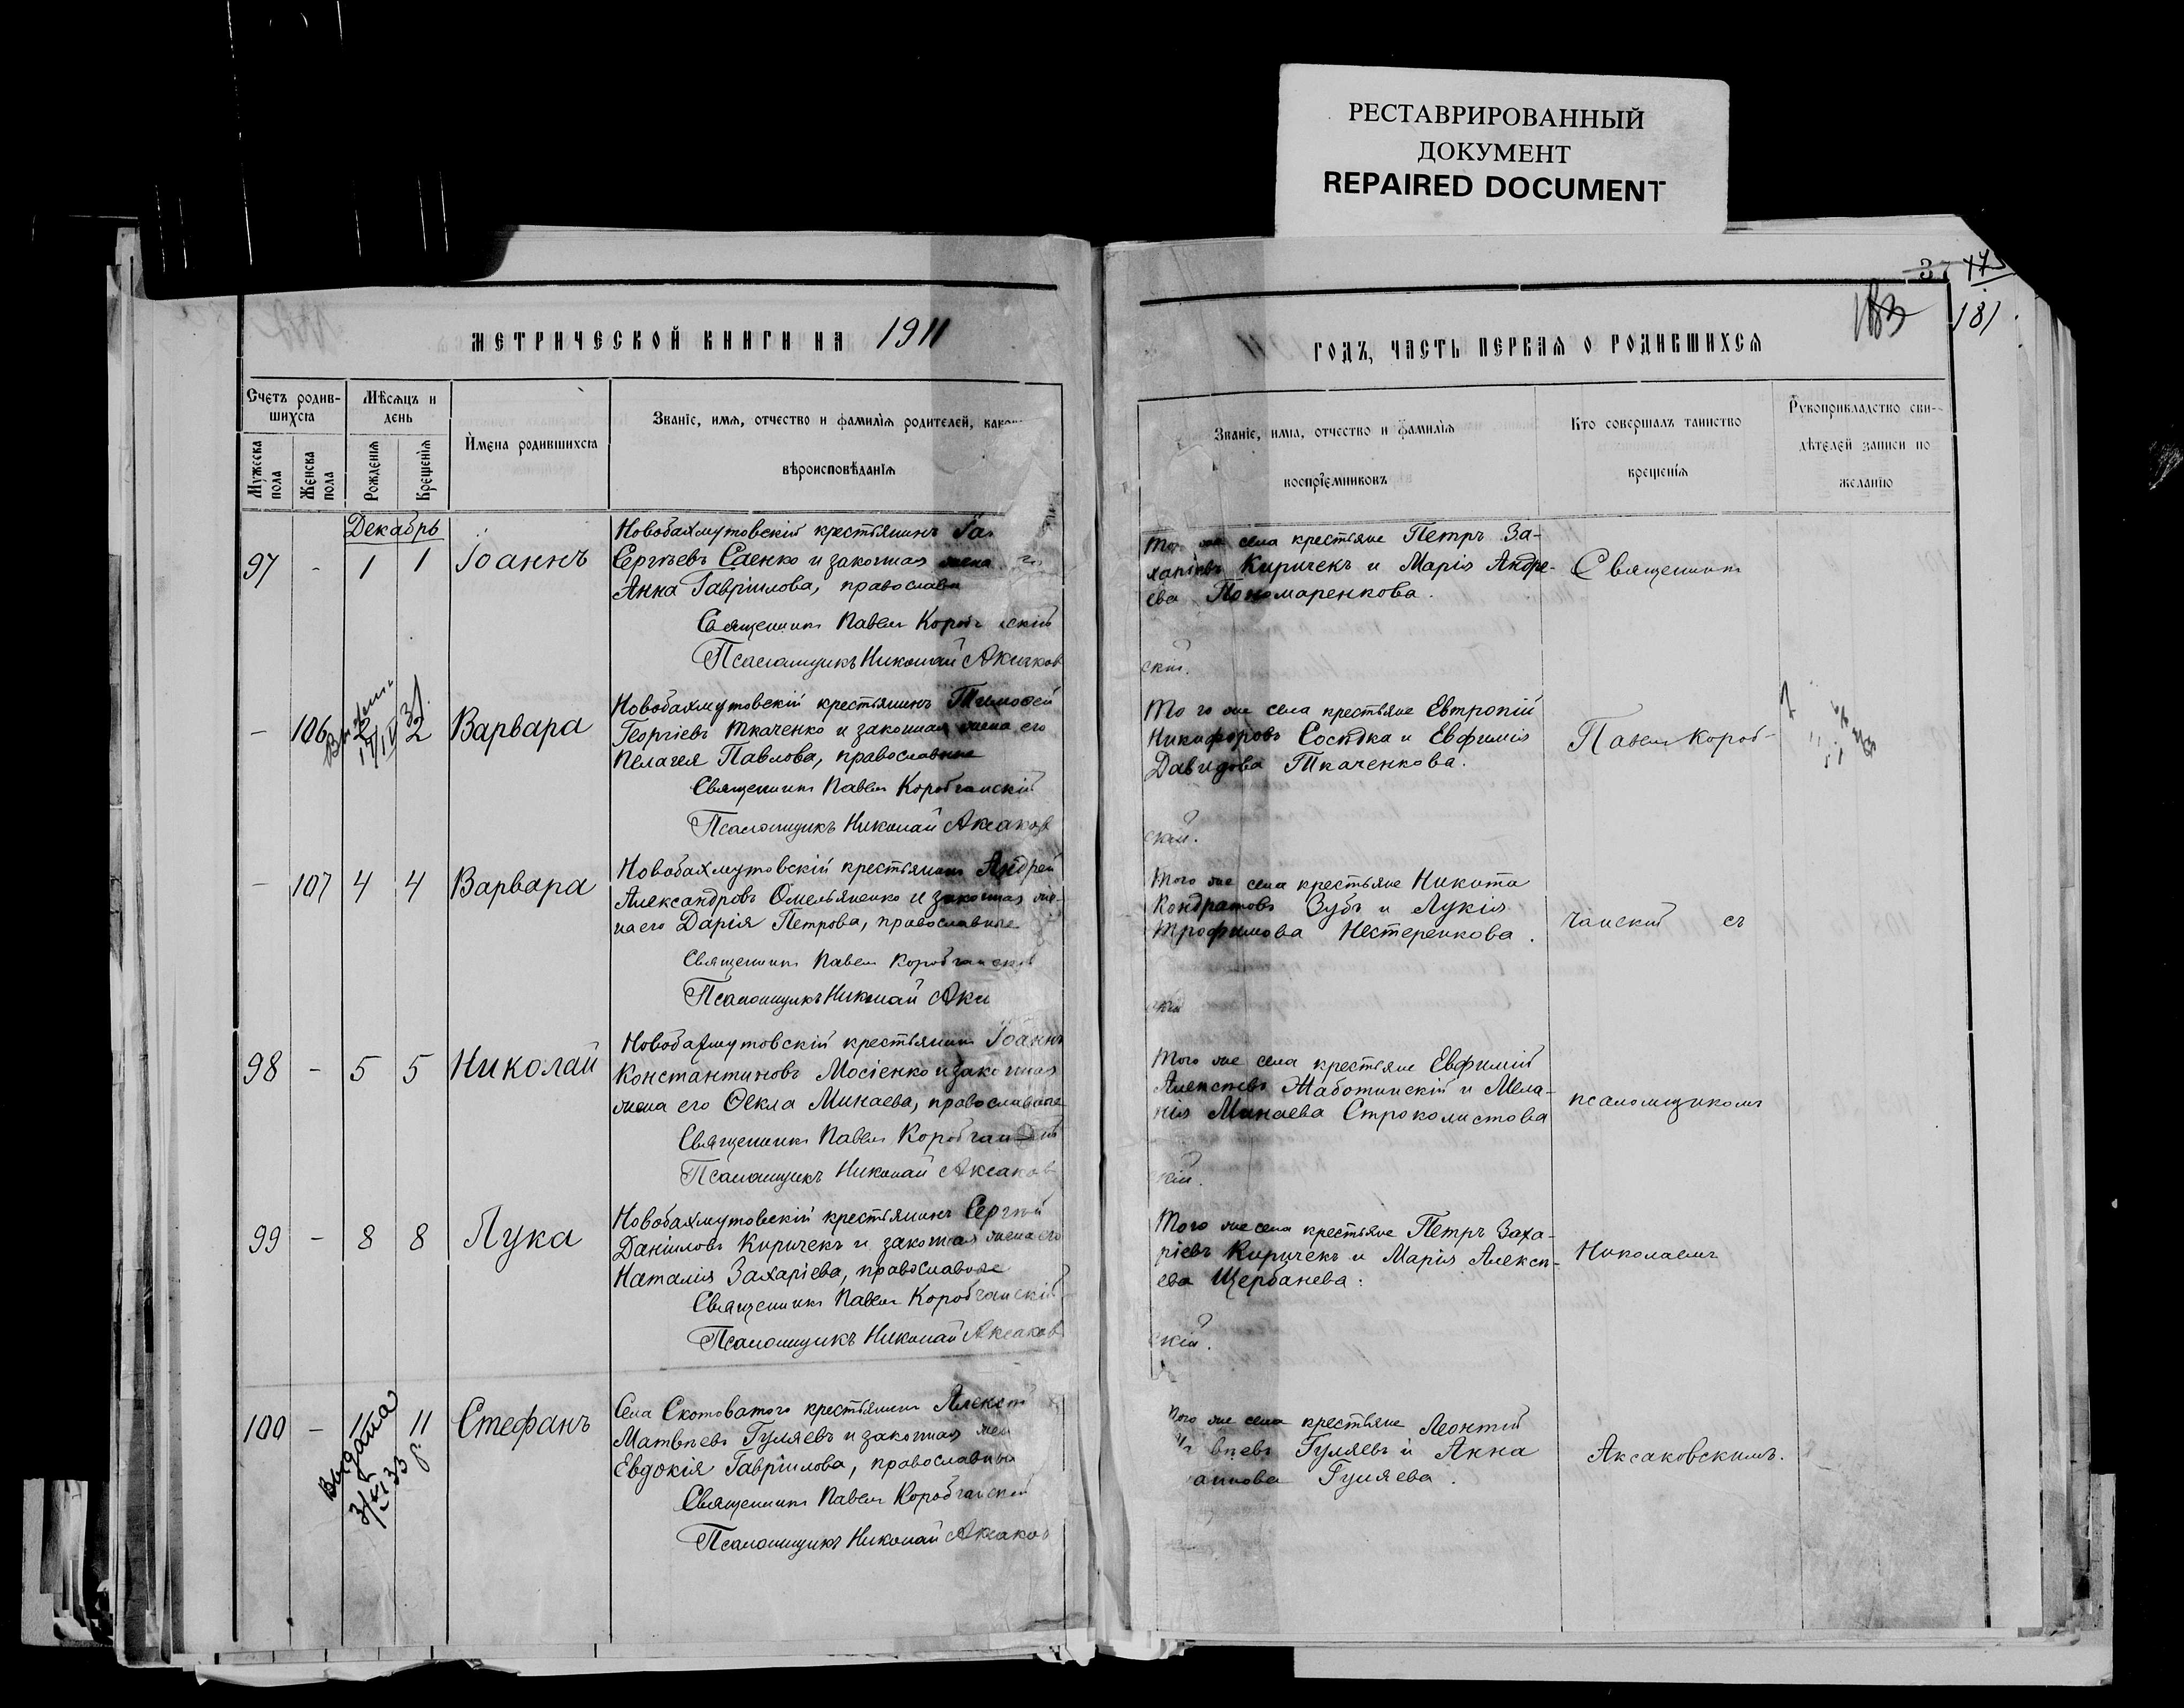 РЕСТАВРИРОВАННЫЙ
ДОКУМЕНТ
REPAIRED DOCUMENT
37
183
181
МЕТРИЧЕСКОЙ КНИГИ НА 1911
Счетъ родив-
шихся
Мѣсяцъ и
день
Мужеска
пола
Женска
пола
Рожденія
Крещенія
Имена родившихся
Званіе, имя, отчество и фамилія родителей, како
вѣроисповѣданія
Декабрь
97 - 1 1 Іоаннъ
Новобахмутовскій крестьянинъ
Сергѣевъ Саенко и законная жена
Анна Гавріилова, православн
Священникъ Павелъ
Псаломщикъ Николай
- 106 2 2 Варвара
17/IV 31.
Новобахмутовскій крестьянинъ Тимофей
Георгіевъ Ткаченко и законная жена его
Пелагея Павлова, православные
Священникъ Павелъ Коробчанскій
Псаломщикъ Николай Аксаков
- 107 4 4 Варвара
Новобахмутовскій крестьянинъ Андрей
Александровъ Омельяненко и законная же-
на его Дарія Петрова, православные
Священникъ Павелъ Коробчанскій
Псаломщикъ Николай Акс
98 - 5 5 Николай
Новобахмутовскій крестьянинъ Іоаннъ
Константиновъ Мосіенко и законная
жена его Ѳекла Минаева, православные
Священникъ Павелъ
Псаломщикъ Николай Аксаков
99 - 8 8 Лука
Новобахмутовскій крестьянинъ Сергѣй
Даніиловъ Киричекъ и законная жена его
Наталія Захаріева, православные
Священникъ Павелъ Коробчанскій
Псаломщикъ Николай Аксаков
100 - 11 11 Стефанъ
Выдана
3/XI 33 г.
Села Скотоватого крестьянинъ Алексѣй
Матвѣевъ Гуляевъ и законная жен
Евдокія Гавріилова, православны
Священникъ Павелъ Коробчанскій
Псаломщикъ Николай Аксаков
ГОДЪ, ЧАСТЬ ПЕРВАЯ О РОДИВШИХСЯ
Званіе, имя, отчество и фамилія
воспріемниковъ
Кто совершалъ таинство
крещенія
Рукоприкладство сви-
дѣтелей записи по
желанію
села крестьяне Петръ За-
харіевъ Киричекъ и Марія Андре-
ева Пономаренкова.
скій.
Того же села крестьяне Евтропій
Никифоровъ Сосѣдка и Евфимія
Давидова Ткаченкова.
скій.
Того же села крестьяне Никита
Кондратовъ Зубъ и Лукія
Трофимова Нестеренкова.
скій
Того же села крестьяне Евфимій
Алексѣевъ Жаботинскій и Мела-
нія Минаева Строколистова
скій.
Того же села крестьяне Петръ Заха-
ріевъ Киричекъ и Марія Алексѣ-
ева Щербанева.
скій.
того же села крестьяне Леонтій
вѣевъ Гуляевъ и Анна
Гуляева.
Священникъ
Павелъ Короб-
чанскій съ
псаломщикомъ
Николаемъ
Аксаковскимъ.